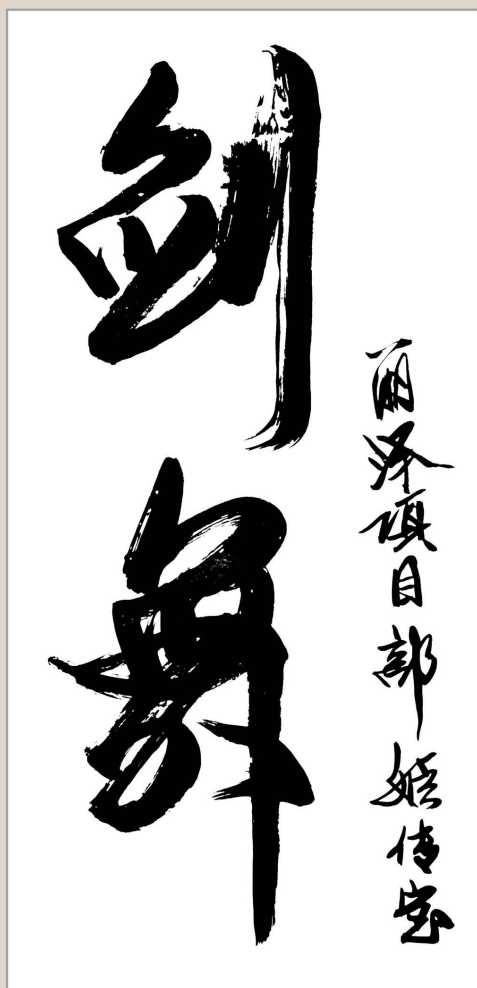 剑舞
丽泽项目部 姬传宝